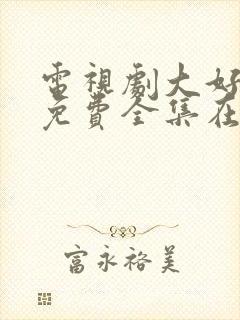 電視劇大好
免費全集在
富永裕美